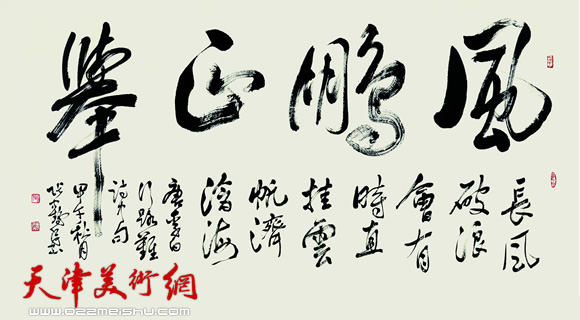 風鵬正舉
長風
破浪
會有
時直
挂雲
帆濟
滄海
唐李白
行路難
詩句
甲午秋月
天津美術網
www.022meishu.com